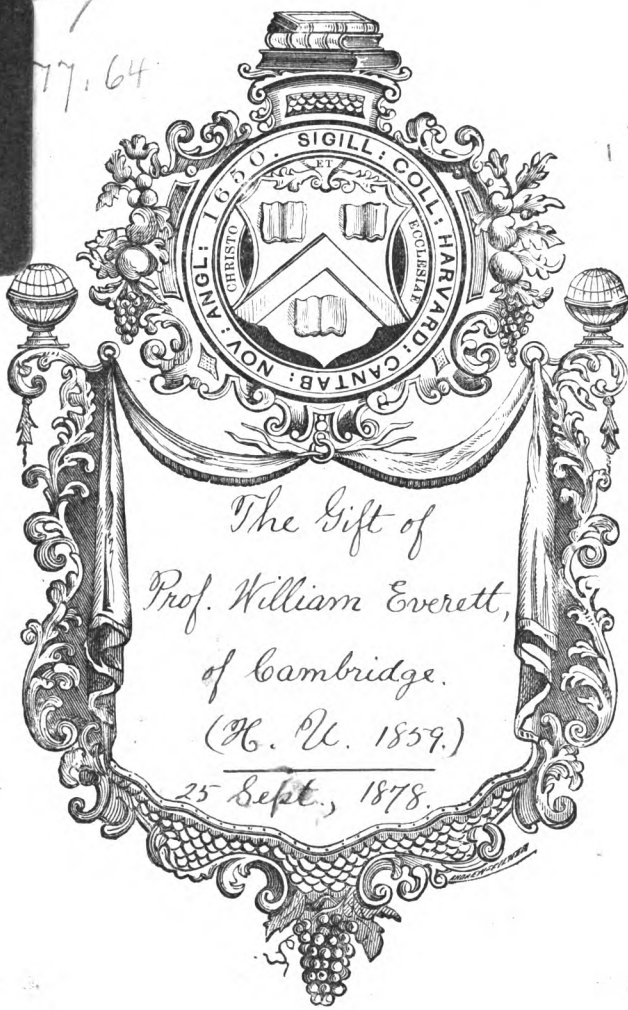 77.64
SIGILL: COLL: HARVARD: CANTAB: NOV: ANGL: 1650.
ET
CHRISTO
ECCLESIAE
The Gift of
Prof. William Everett,
of Cambridge.
(H. U. 1859.)
25 Sept., 1878.